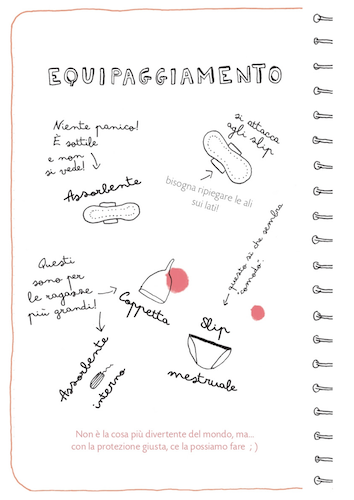 EQUIPAGGIAMENTO
Niente panico!
È sottile
e non
si vede!
Assorbente
si attacca
agli slip
bisogna ripiegare le ali
sui lati!
Questi
sono per
le ragazze
più grandi!
Coppetta
questo sì che sembra
"comodo".
Assorbente
interno
Slip
mestruale
Non è la cosa più divertente del mondo, ma...
con la protezione giusta, ce la possiamo fare ; )